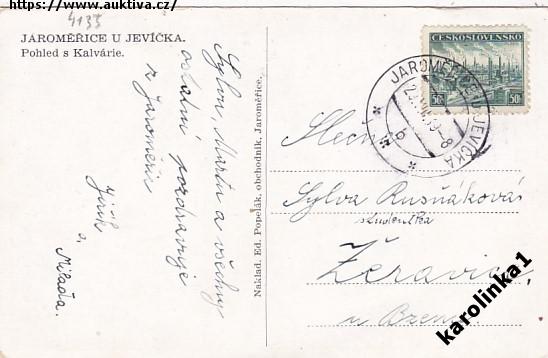 https://www.auktiva.cz/
4133
JAROMĚŘICE U JEVÍČKA.
Pohled s Kalvárie.
Sylvu, Martu a všechny
ostatní pozdravuje
z Jaroměřic
Jiřík
a
Milada.
Naklad. Ed. Popelák, obchodník, Jaroměřice.
ČESKOSLOVENSKO
50h 50h
JAROMĚŘICE U JEVÍČKA
b
Slečna
Sylva Rusňáková
studentka
Žeravice
u Bzence
karolinka1